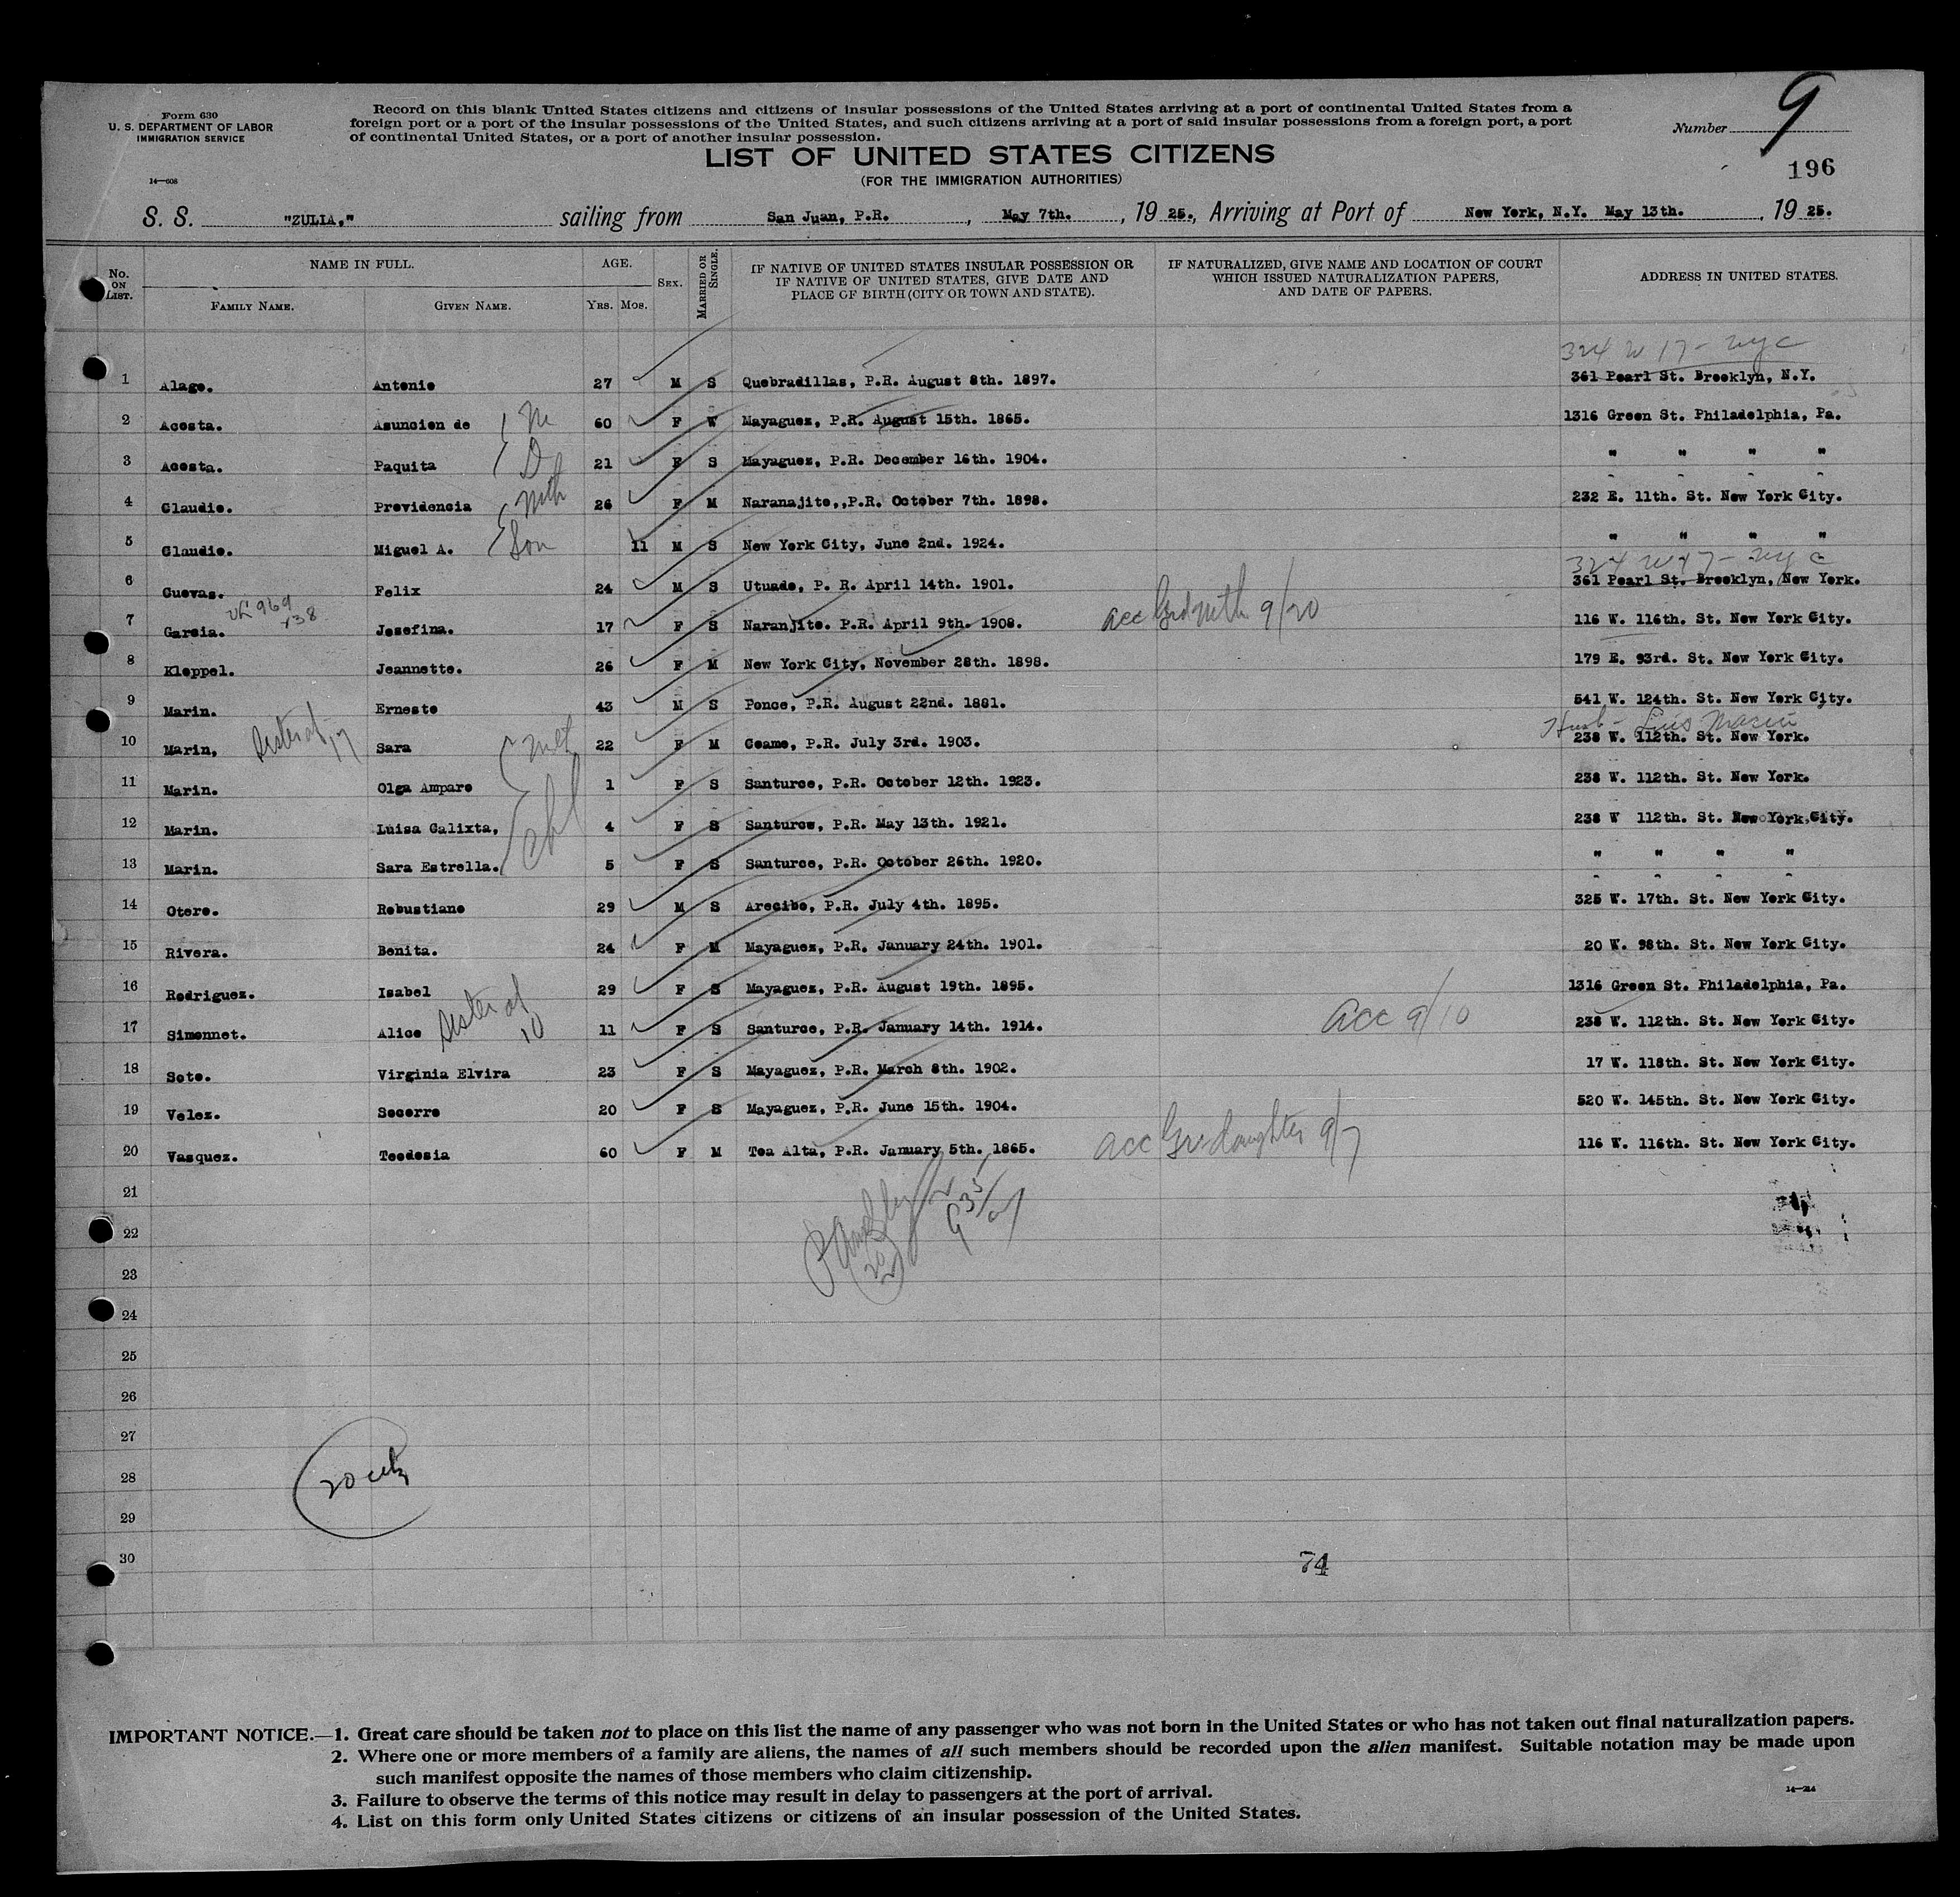 Form 630
U. S. DEPARTMENT OF LABOR
IMMIGRATION SERVICE
14—608
Record on this blank United States citizens and citizens of insular possessions of the United States arriving at a port of continental United States from a
foreign port or a port of the insular possessions of the United States, and such citizens arriving at a port of said insular possessions from a foreign port, a port
of continental United States, or a port of another insular possession.
Number 9
196
LIST OF UNITED STATES CITIZENS
(FOR THE IMMIGRATION AUTHORITIES)
S. S. "ZULIA," sailing from San Juan, P.R. , May 7th. , 19 25., Arriving at Port of New York, N.Y. May 13th. , 19 25.
No. ON LIST. NAME IN FULL. FAMILY NAME. GIVEN NAME. AGE. YRS. MOS. SEX. MARRIED OR SINGLE. IF NATIVE OF UNITED STATES INSULAR POSSESSION OR IF NATIVE OF UNITED STATES, GIVE DATE AND PLACE OF BIRTH (CITY OR TOWN AND STATE). IF NATURALIZED, GIVE NAME AND LOCATION OF COURT WHICH ISSUED NATURALIZATION PAPERS, AND DATE OF PAPERS. ADDRESS IN UNITED STATES.
324 W 17 - NYC
1 Alago. Antonio 27 M S Quebradillas, P.R. August 8th. 1897. 361 Pearl St. Brooklyn, N.Y.
2 Acosta. Asuncion de M 60 F W Mayaguez, P.R. August 15th. 1865. 1316 Green St. Philadelphia, Pa.
3 Acosta. Paquita D 21 F S Mayaguez, P.R. December 16th. 1904. " " " "
4 Claudio. Providencia Mth 26 F M Naranajito,,P.R. October 7th. 1898. 232 E. 11th. St. New York City.
5 Claudio. Miguel A. Son 11 M S New York City, June 2nd. 1924. " " " "
324 W 17 - NYC
6 Cuevas. Felix 24 M S Utuado, P. R. April 14th. 1901. 361 Pearl St. Brooklyn, New York.
7 Garcia. Josefina. 17 F S Naranjito. P.R. April 9th. 1908. acc Grdmth 9/20 116 W. 116th. St. New York City.
8 Kleppel. Jeannette. 26 F M New York City, November 28th. 1898. 179 E. 93rd. St. New York City.
9 Marin. Ernesto 43 M S Ponce, P.R. August 22nd. 1881. 541 W. 124th. St. New York City.
Husb - Luis Marin
10 Marin, Sister of 17 Sara 22 F M Coamo, P.R. July 3rd. 1903. 238 W. 112th. St. New York.
11 Marin. Olga Amparo 1 F S Santurce, P.R. October 12th. 1923. 238 W. 112th. St. New York.
12 Marin. Luisa Calixta, 4 F S Santurce, P.R. May 13th. 1921. 238 W 112th. St. New York,City.
13 Marin. Sara Estrella. 5 F S Santurce, P.R. October 26th. 1920. " " " "
14 Otero. Robustiano 29 M S Arecibo, P.R. July 4th. 1895. 325 W. 17th. St. New York City.
15 Rivera. Benita. 24 F M Mayaguez, P.R. January 24th. 1901. 20 W. 98th. St. New York City.
16 Rodriguez. Isabel 29 F S Mayaguez, P.R. August 19th. 1895. 1316 Green St. Philadelphia, Pa.
17 Simonnet. Alice Sister of 10 11 F S Santurce, P.R. January 14th. 1914. acc 9/10 238 W. 112th. St. New York City.
18 Soto. Virginia Elvira 23 F S Mayaguez, P.R. March 8th. 1902. 17 W. 118th. St. New York City.
19 Velez. Socorro 20 F S Mayaguez, P.R. June 15th. 1904. 520 W. 145th. St. New York City.
20 Vasquez. Teodosia 60 F M Toa Alta, P.R. January 5th. 1865. acc Grdaughter 9/7 116 W. 116th. St. New York City.
21
22
23
24
25
26
27
28
29
30
74
IMPORTANT NOTICE.—1. Great care should be taken not to place on this list the name of any passenger who was not born in the United States or who has not taken out final naturalization papers.
2. Where one or more members of a family are aliens, the names of all such members should be recorded upon the alien manifest. Suitable notation may be made upon
such manifest opposite the names of those members who claim citizenship.
3. Failure to observe the terms of this notice may result in delay to passengers at the port of arrival.
4. List on this form only United States citizens or citizens of an insular possession of the United States.
14—214